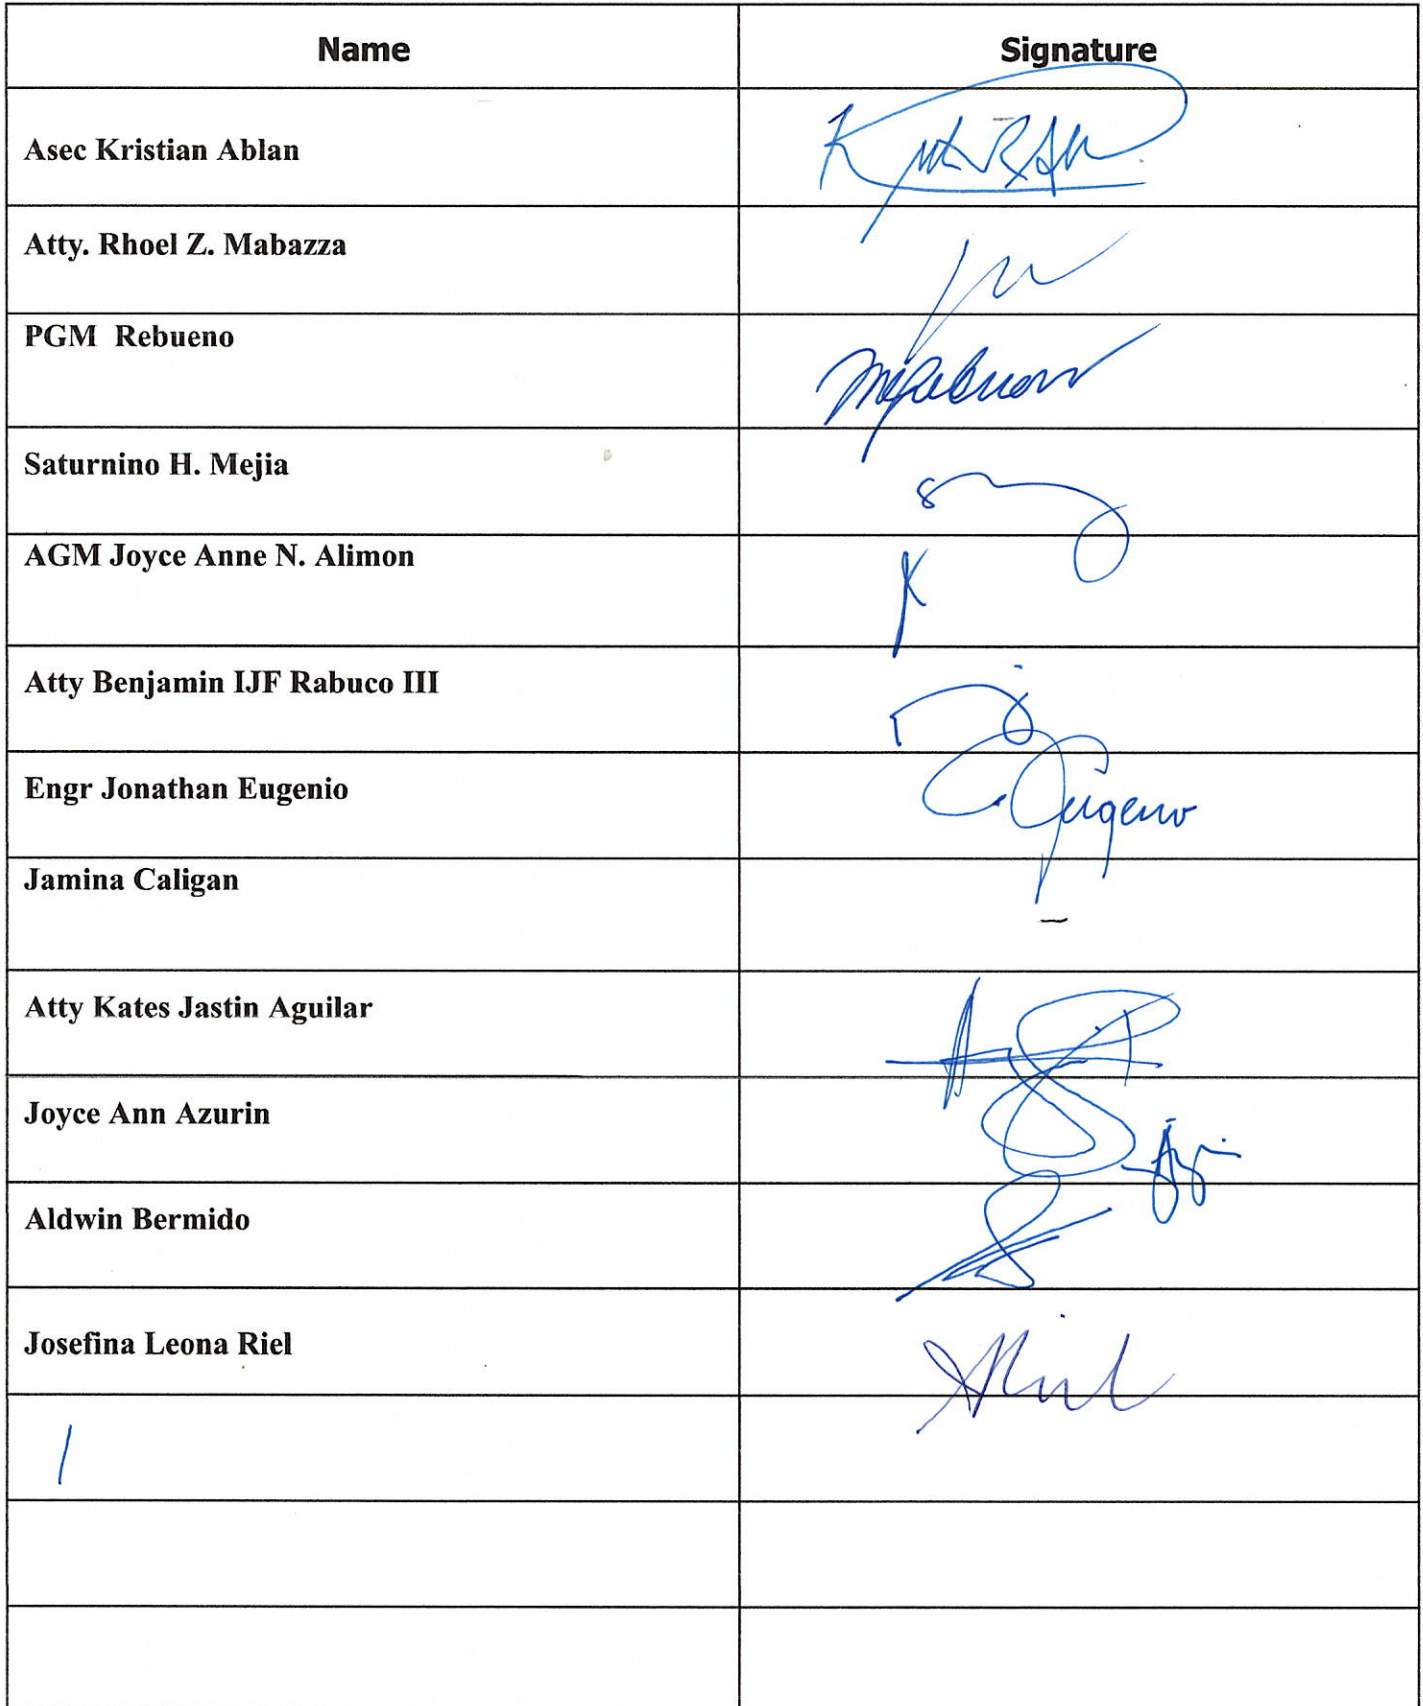 Name Signature
Asec Kristian Ablan
Atty. Rhoel Z. Mabazza
PGM Rebueno
Saturnino H. Mejia
AGM Joyce Anne N. Alimon
Atty Benjamin IJF Rabuco III
Engr Jonathan Eugenio
Jamina Caligan
Atty Kates Jastin Aguilar
Joyce Ann Azurin
Aldwin Bermido
Josefina Leona Riel